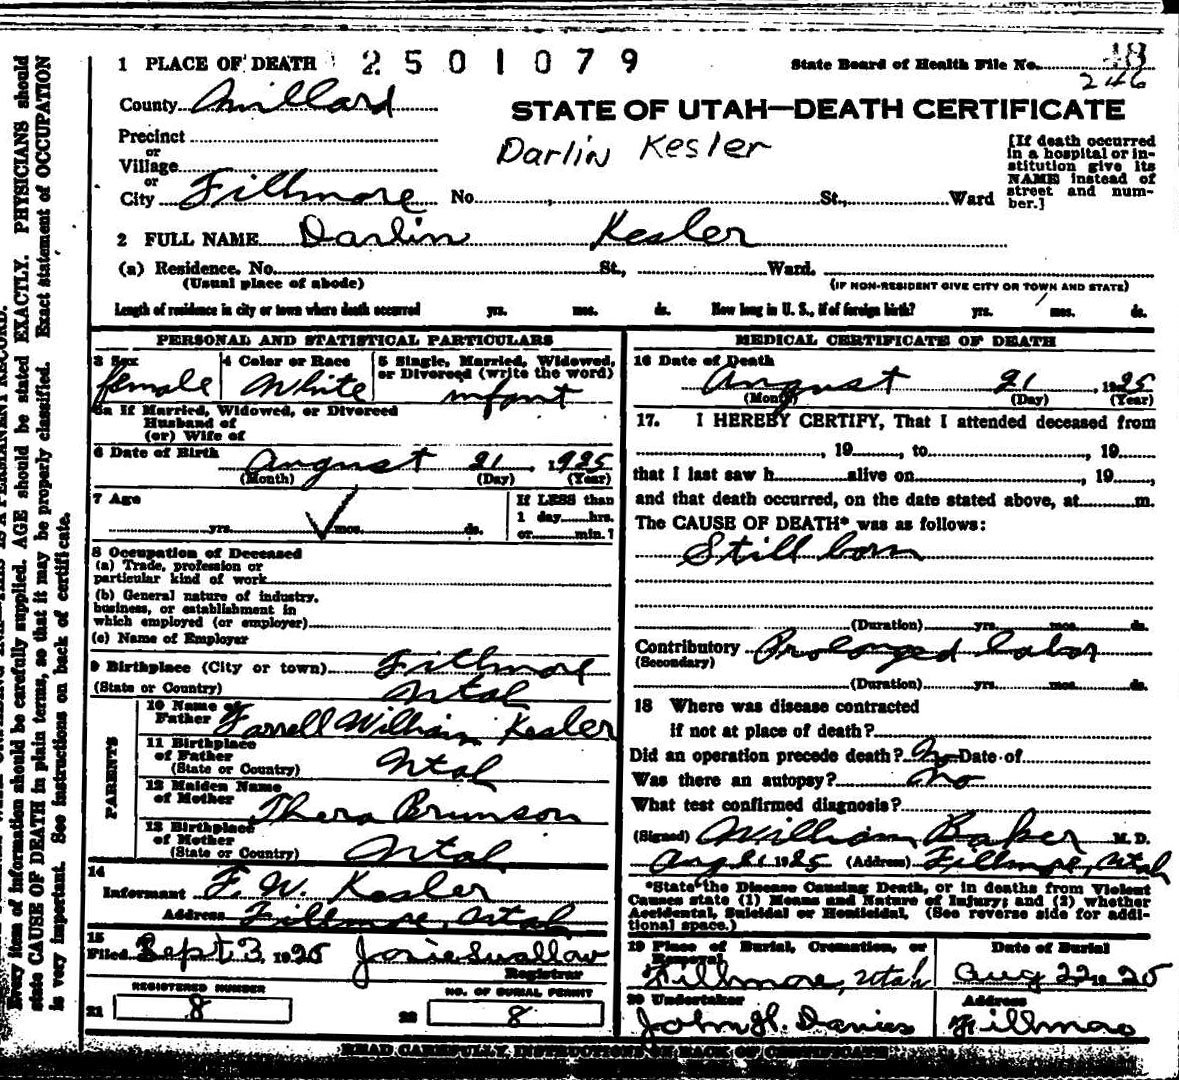 1 PLACE OF DEATH 2501079
State Board of Health File No. 18
246
County Millard
STATE OF UTAH—DEATH CERTIFICATE
Precinct
or
Village
or
City Fillmore No. , St., Ward
Darlin Kesler
[If death occurred
in a hospital or in-
stitution give its
NAME instead of
street and num-
ber.]
2 FULL NAME Darlin Kesler
(a) Residence. No. St., Ward.
(Usual place of abode) (IF NON-RESIDENT GIVE CITY OR TOWN AND STATE)
Length of residence in city or town where death occurred yrs. mos. ds. How long in U. S., if of foreign birth? yrs. mos. ds.
PERSONAL AND STATISTICAL PARTICULARS
3 Sex 4 Color or Race 5 Single, Married, Widowed,
or Divorced (write the word)
female White infant
5a If Married, Widowed, or Divorced
Husband of
(or) Wife of
6 Date of Birth August 21, 1925
(Month) (Day) (Year)
7 Age If LESS than
1 day hrs.
yrs. mos. ds. or min.?
8 Occupation of Deceased
(a) Trade, profession or
particular kind of work
(b) General nature of industry,
business, or establishment in
which employed (or employer)
(c) Name of Employer
9 Birthplace (City or town) Fillmore
(State or Country) Utah
PARENTS
10 Name of
Father Farrell William Kesler
11 Birthplace
of Father
(State or Country) Utah
12 Maiden Name
of Mother Thera Brunson
13 Birthplace
of Mother
(State or Country) Utah
14
Informant F. W. Kesler
Address Fillmore, Utah
15
Filed Sept 3, 1925 Josie Swallow
Registrar
REGISTERED NUMBER NO. OF BURIAL PERMIT
21 8 22 8
MEDICAL CERTIFICATE OF DEATH
16 Date of Death
August 21, 1925
(Month) (Day) (Year)
17. I HEREBY CERTIFY, That I attended deceased from
, 19 , to , 19
that I last saw h alive on , 19 ,
and that death occurred, on the date stated above, at m.
The CAUSE OF DEATH* was as follows:
Still born
(Duration) yrs. mos. ds.
Contributory Prolonged labor
(Secondary)
(Duration) yrs. mos. ds.
18 Where was disease contracted
if not at place of death?
Did an operation precede death? No Date of
Was there an autopsy? No
What test confirmed diagnosis?
(Signed) William Baker M. D.
Aug 21 1925 (Address) Fillmore, Utah
*State the Disease Causing Death, or in deaths from Violent
Causes state (1) Means and Nature of Injury; and (2) whether
Accidental, Suicidal or Homicidal. (See reverse side for addi-
tional space.)
19 Place of Burial, Cremation, or
Removal Date of Burial
Fillmore, Utah Aug 22 1925
20 Undertaker Address
John H. Davies Fillmore
READ CAREFULLY INSTRUCTIONS ON BACK OF CERTIFICATE
Every item of information should be carefully supplied. AGE should be stated EXACTLY. PHYSICIANS should
state CAUSE OF DEATH in plain terms, so that it may be properly classified. Exact statement of OCCUPATION
is very important. See instructions on back of certificate.
IS A PERMANENT RECORD.